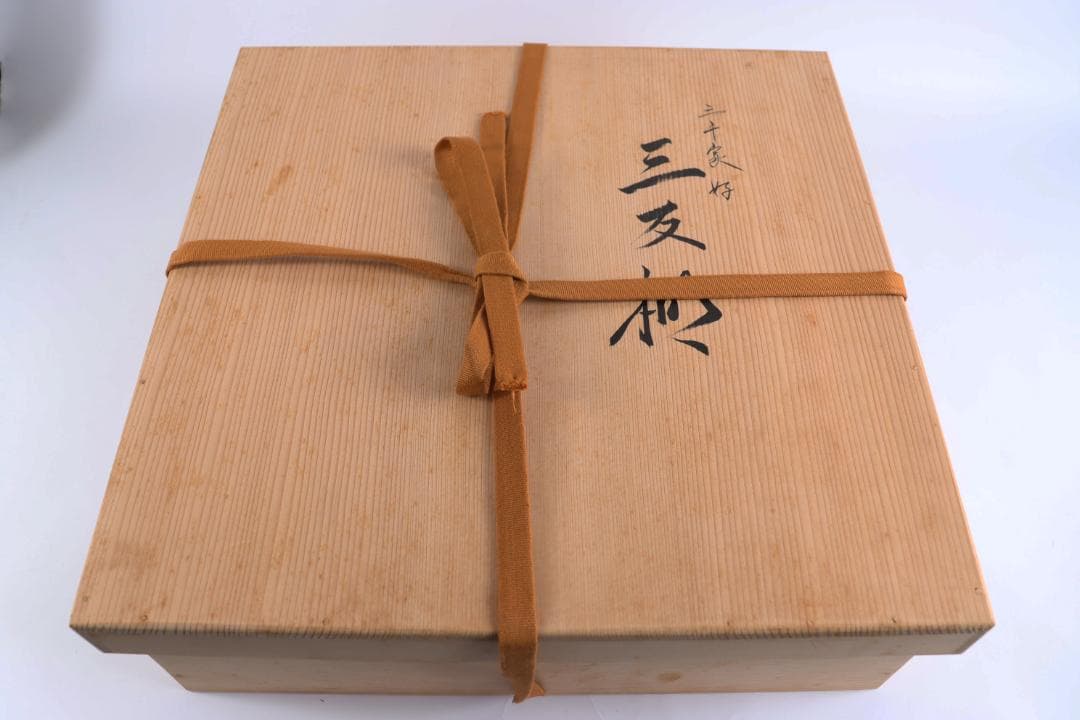 三千家好
三友棚